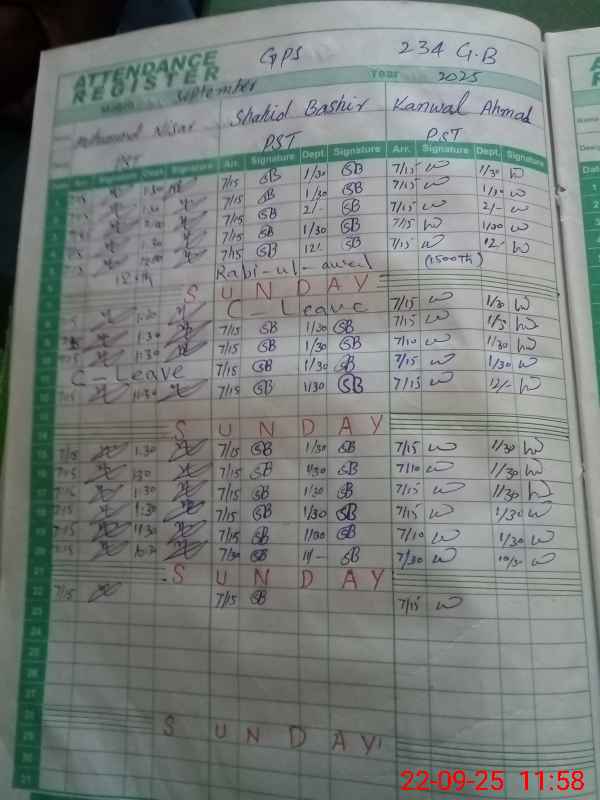 GPS 234 G.B
ATTENDANCE
REGISTER
Month September Year 2025
Mohammad Nisar Shahid Bashir Kanwal Ahmad
PST PST PST
Arr. Signature Dept. Signature Arr. Signature Dept. Signature Arr. Signature Dept. Signature
1 7/15 1:30 7/15 SB 1/30 SB 7/15 1/30
2 7/15 1:30 7/15 SB 1/30 SB 7/15 1/30
3 7/15 7/15 SB 2/- SB 7/15 2/-
4 7/15 1:30 7/15 SB 1/30 SB 7/15 1/30
5 7/15 7/15 SB 12/- SB 7/15 12/-
6 12th Rabi-ul-awal (1500th)
7 SUNDAY
8 7/15 1:30 C-Leave 7/15 1/30
9 7/15 1:30 7/15 SB 1/30 SB 7/15
10 7/15 1:30 7/15 SB 1/30 SB 7/10 1/30
11 C-Leave 7/15 SB 1/30 SB 7/15 1/30
12 7/15 7/15 SB 1/30 SB 7/15 12/-
13
14 SUNDAY
15 7/15 1:30 7/15 SB 1/30 SB 7/15 1/30
16 7/15 7/15 SB 1/30 SB 7/10 1/30
17 7/15 1:30 7/15 SB 1/30 SB 7/15 1/30
18 7/15 1:30 7/15 SB 1/30 SB 7/15 1/30
19 7/15 1:30 7/15 SB 1/30 SB 7/10 1/30
20 7/15 7/30 SB 11/- SB 7/30
21 SUNDAY
22 7/15 7/15 SB 7/15
23
24
25
26
27
28 SUNDAY
29
30
31
22-09-25 11:58